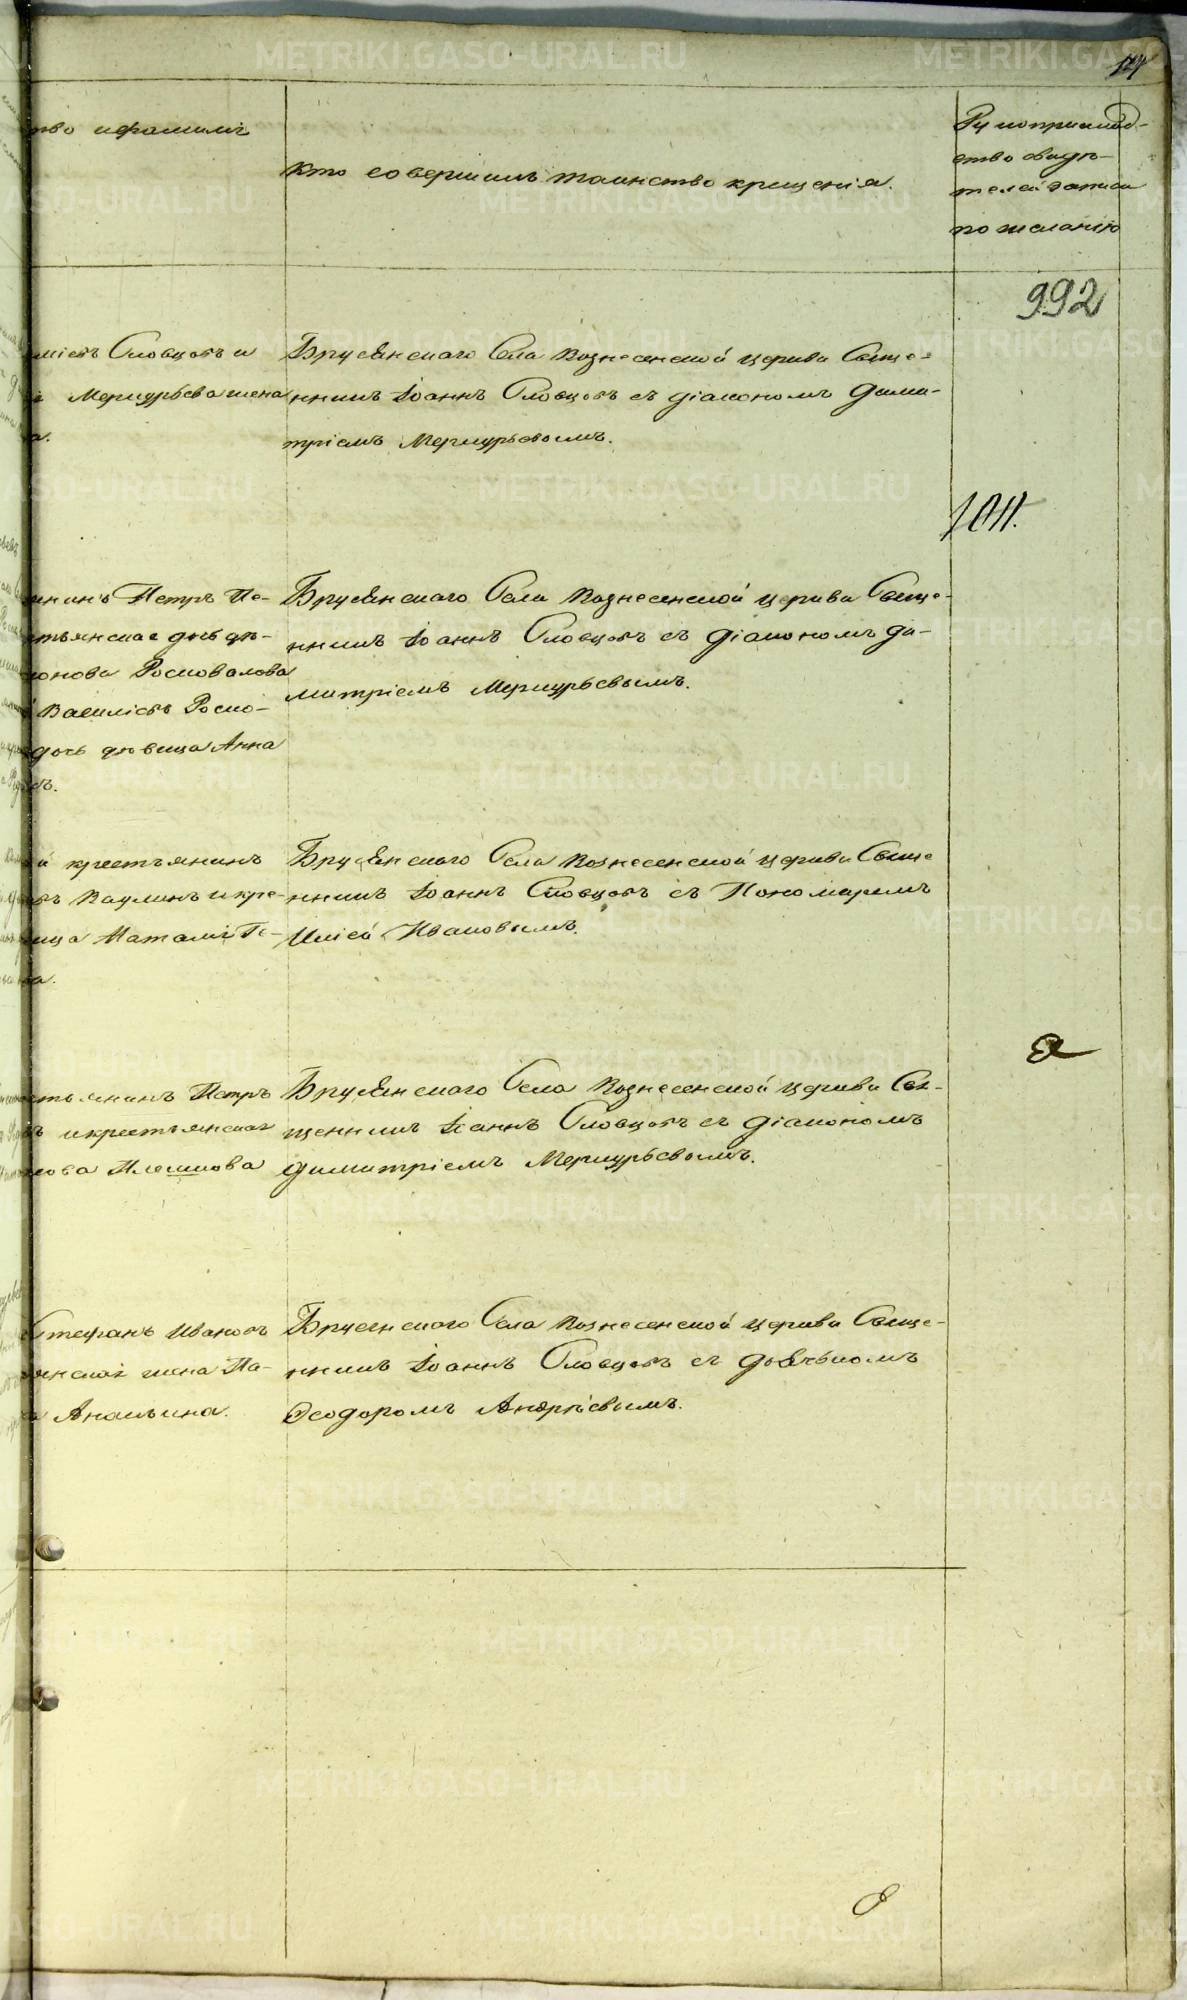 тво ифамилiи
Кто совершилъ таинство крещенiя.
Рукоприклад-
ство свидѣ-
телей записи
по желанiю
992
Словцовъ и
Меркурьева жена
Брусянскаго Села Вознесенской церкви Свяще-
нникъ Iоаннъ Словцовъ съ дiакономъ Дими-
трiемъ Меркурьевымъ.
1011.
Петръ Пе-
онова Росковалова
Василiевъ Роско-
дочь дѣвица Анна
Брусянскаго Села Вознесенской церкви Свяще-
нникъ Iоаннъ Словцовъ съ дiакономъ Ди-
митрiемъ Меркурьевымъ.
й крестьянинъ
въ Ваулинъ и кре-
ица Наталiя Ге-
Брусянскаго Села Вознесенской церкви Свяще
нникъ Iоаннъ Словцовъ съ Пономаремъ
Илiей Ивановымъ.
стьянинъ Петръ
въ икрестьянская
Брусянскаго Села Вознесенской церкви Свя-
щенникъ Iоаннъ Словцовъ съ дiакономъ
Димитрiемъ Меркурьевымъ.
Стефанъ Ивановъ
янская жена Па-
а Ананьина.
Брусянскаго Села Вознесенской церкви Свяще-
нникъ Iоаннъ Словцовъ съ дьячькомъ
Ѳеодоромъ Андрiевымъ.
METRIKI.GASO-URAL.RU